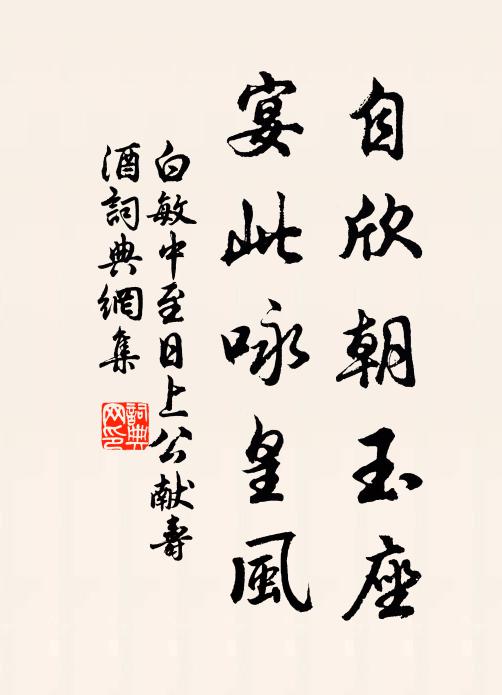 自欣朝玉座
宴此咏皇風
白敏中至日上公献壽
酒詞典網集
詞典
网印